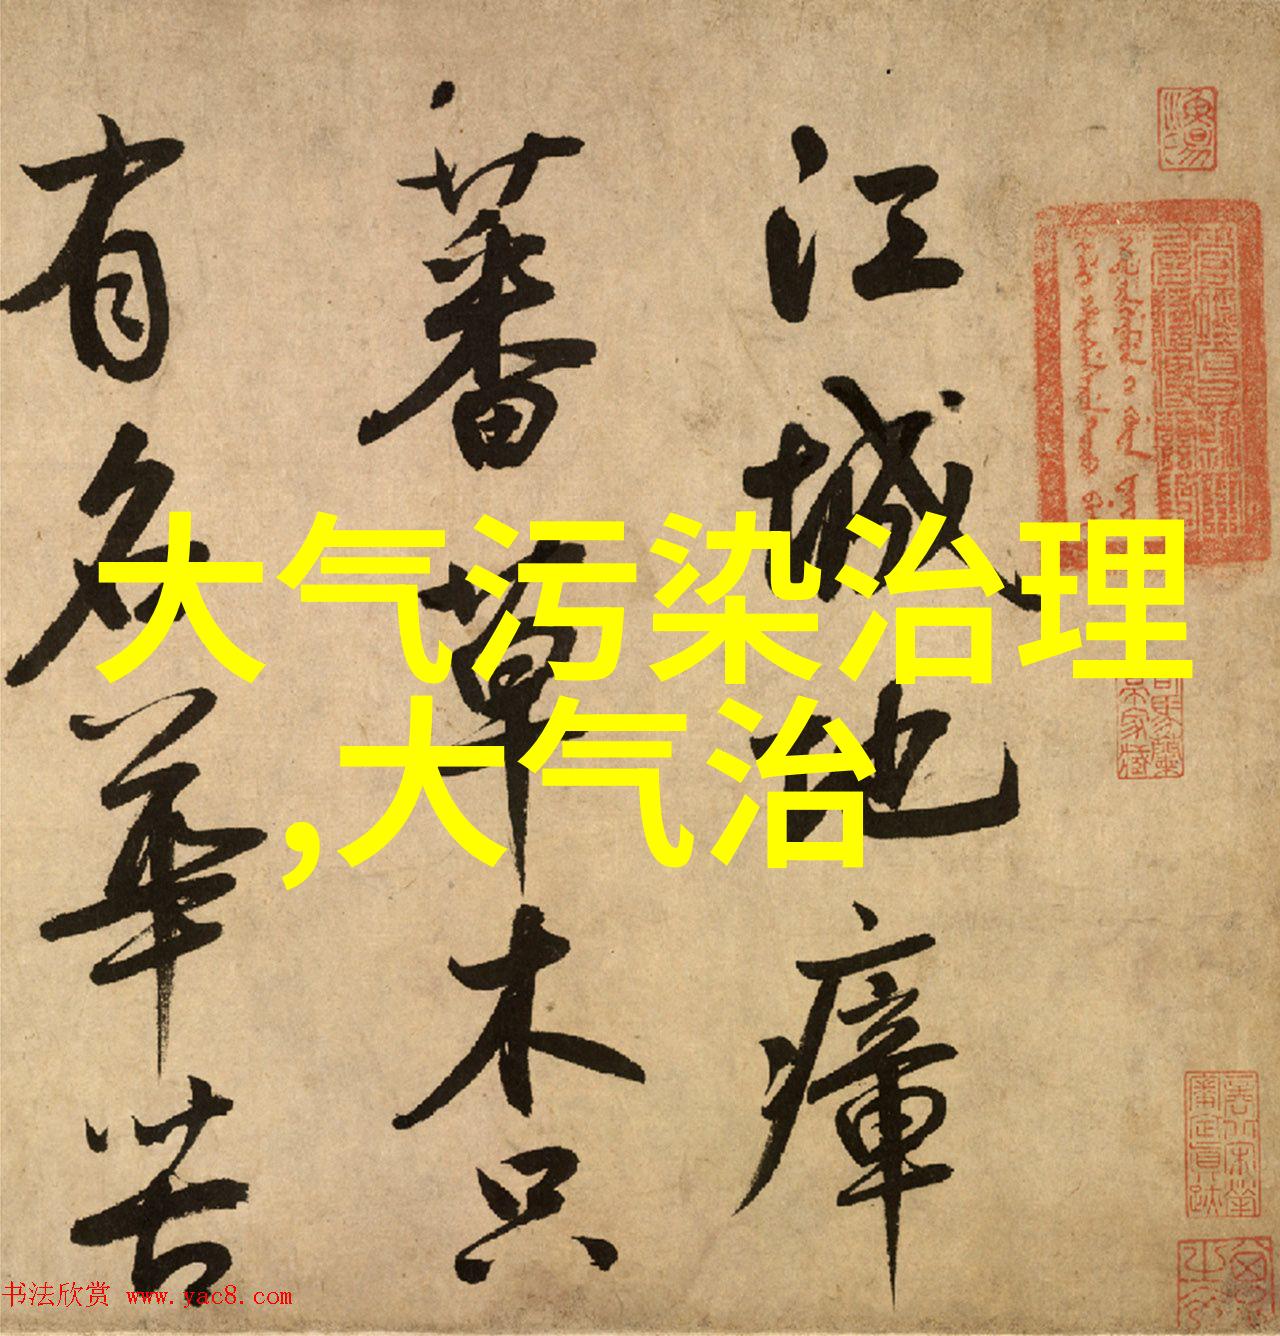 江城地瘴
蕃草木只
有名華苦
大气污染治理
,大气治
书法欣赏 www.yac8.com